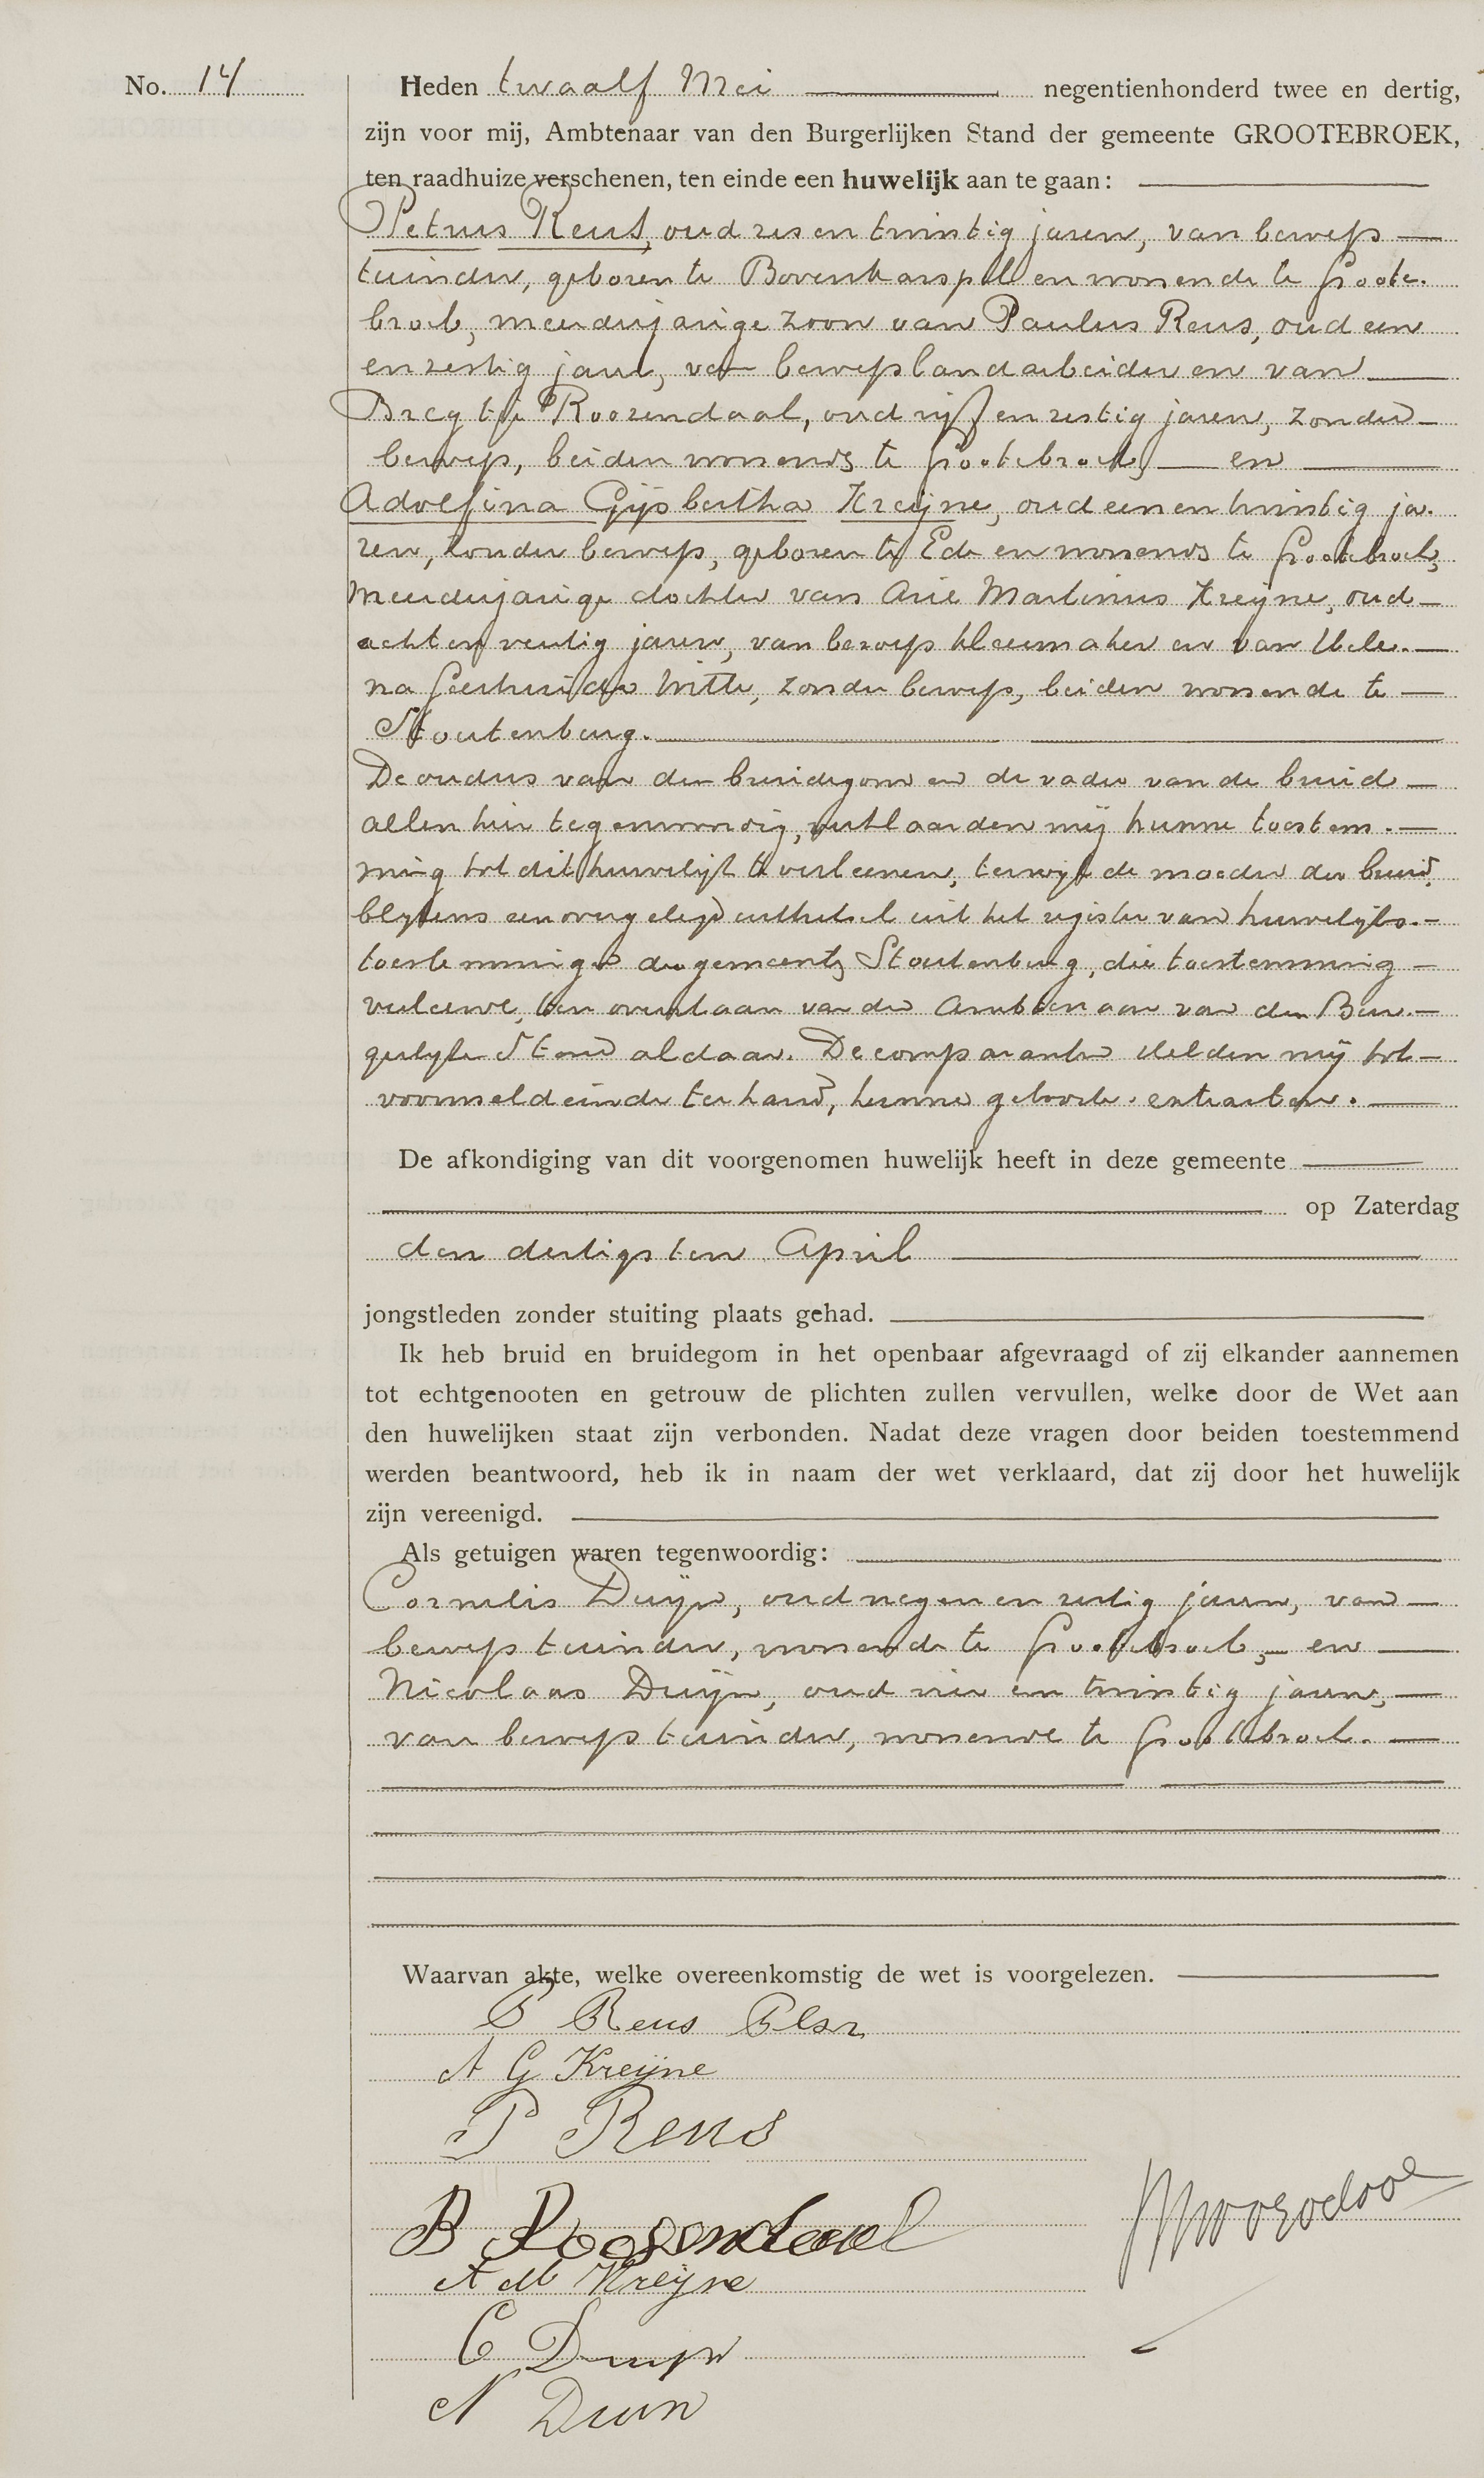 No. 14
Heden twaalf Mei negentienhonderd twee en dertig,
zijn voor mij, Ambtenaar van den Burgerlijken Stand der gemeente GROOTEBROEK,
ten raadhuize verschenen, ten einde een huwelijk aan te gaan:
Petrus Reus, oud zes en twintig jaren, van beroep
tuinder, geboren te Bovenkarspel en wonende te Groote-
broek, meerderjarige zoon van Paulus Reus, oud een
en zestig jaren, van beroep landarbeider en van
Bregtje Roozendaal, oud vijf en zestig jaren, zonder
beroep, beiden wonende te Grootebroek, en
Adolfina Gijsbertha Kreijne, oud een en twintig ja-
ren, zonder beroep, geboren te Ede en wonende te Grootebroek,
meerderjarige dochter van Arie Martinus Kreijne, oud
acht en veertig jaren, van beroep kleermaker en van Hele-
na Geertruida Witte, zonder beroep, beiden wonende te
Stoutenburg.
De ouders van den bruidegom en de vader van de bruid
allen hier tegenwoordig, verklaarden mij hunne toestem-
ming tot dit huwelijk te verleenen, terwijl de moeder der bruid,
blijkens een overgelegd uittreksel uit het register van huwelijks-
toestemmingen der gemeente Stoutenburg, die toestemming
verleende, ten overstaan van den Ambtenaar van den Bur-
gerlijken Stand aldaar. De comparanten stelden mij tot
voormeld einde ter hand, hunne geboorte-extracten.
De afkondiging van dit voorgenomen huwelijk heeft in deze gemeente
op Zaterdag
den dertigsten April
jongstleden zonder stuiting plaats gehad.
Ik heb bruid en bruidegom in het openbaar afgevraagd of zij elkander aannemen
tot echtgenooten en getrouw de plichten zullen vervullen, welke door de Wet aan
den huwelijken staat zijn verbonden. Nadat deze vragen door beiden toestemmend
werden beantwoord, heb ik in naam der wet verklaard, dat zij door het huwelijk
zijn vereenigd.
Als getuigen waren tegenwoordig:
Cornelis Duijn, oud negen en zestig jaren, van
beroep tuinder, wonende te Grootebroek, en
Nicolaas Duijn, oud vier en twintig jaren,
van beroep tuinder, wonende te Grootebroek.
Waarvan akte, welke overeenkomstig de wet is voorgelezen.
P Reus Plsz
A G Kreijne
P Reus
B Roosendaal
A M Kreijne
C Duijn
N Duin